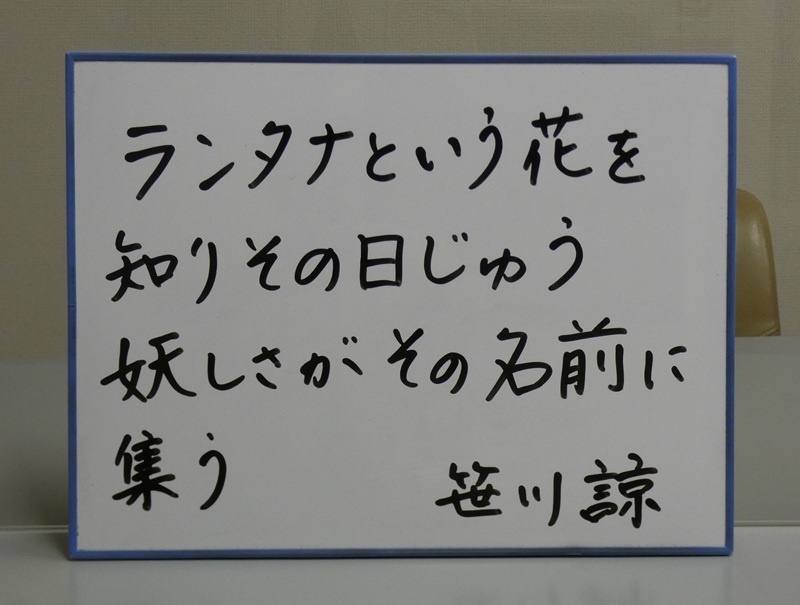 ランタナという花を
知りその日じゅう
妖しさがその名前に
集う
笹川諒